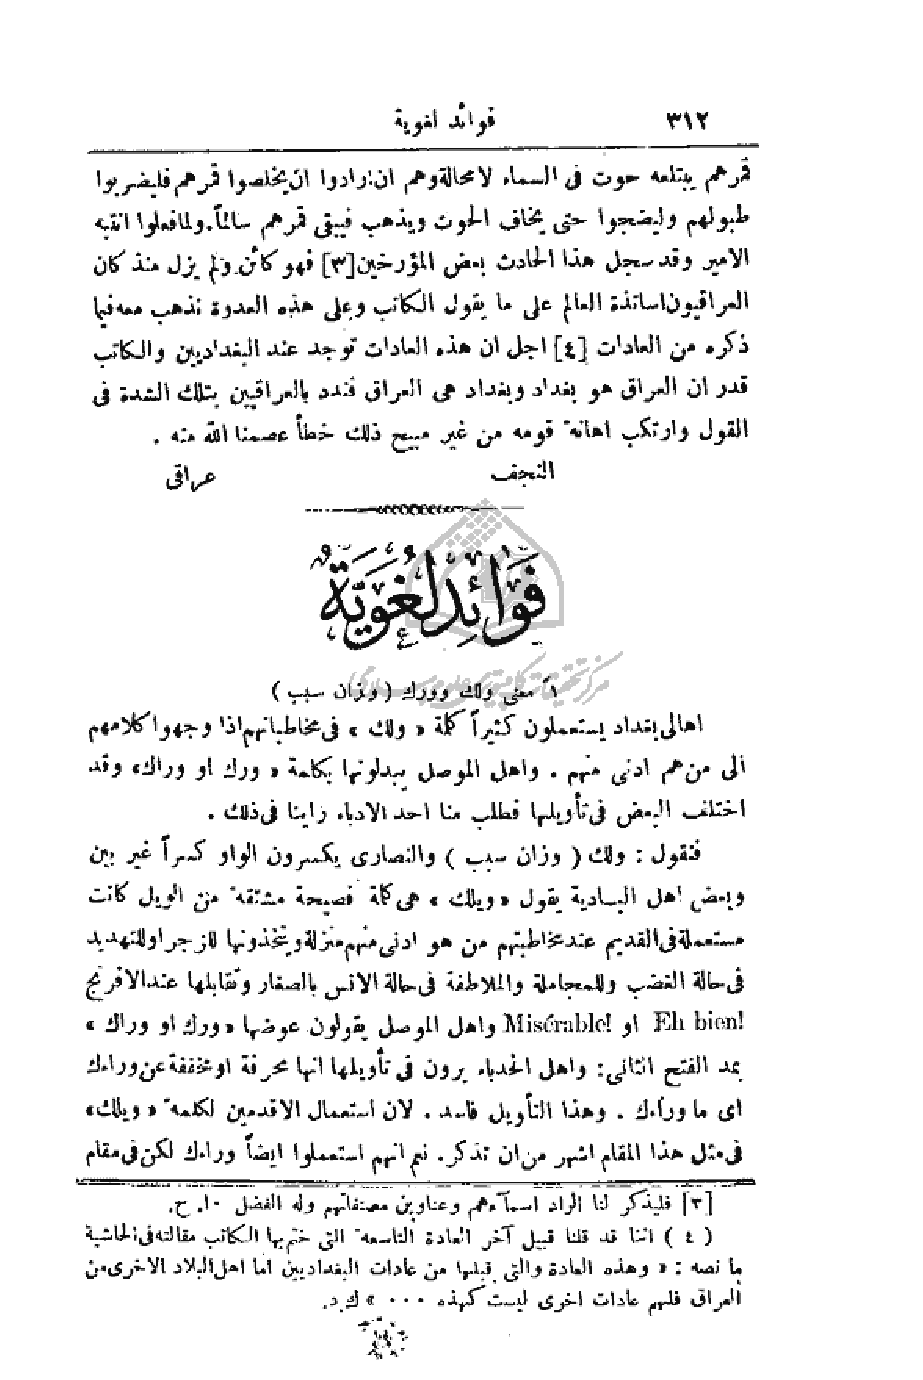 ٣١٢ فوائد لغوية
قمرهم يبتلعه حوت في السماء لامحالة وهم ان ارادوا ان يخلصوا قمرهم فليضربوا
طبولهم وليضجوا حتى يخاف الحوت ويذهب فيبقى قمرهم سالماً. ولما فعلوا انتبه
الامير وقد سجل هذا الحادث بعض المؤرخين [٣] فهو كائن ولم يزل منذ كان
العراقيون اساتذة العالم على ما يقول الكاتب وعلى هذه العدوة نذهب معه فيما
ذكره من العادات [٤] اجل ان هذه العادات توجد عند البغداديين والكاتب
قدر ان العراق هو بغداد وبغداد هي العراق فندد بالعراقيين بتلك الشدة في
القول وارتكب اهانة قومه من غير مبيح ذلك خطأ عصمنا الله منه .
النجف عراقي
فَوَائِد لُغَوِيَّة
١ً معنى ولك وورك ( وزان سبب )
اهالي بغداد يستعملون كثيراً كلمة « ولك » في مخاطباتهم اذا وجهوا كلامهم
الى من هم ادنى منهم . واهل الموصل يبدلونها بكلمة « ورك او وراك» وقد
اختلف البعض في تأويلها فطلب منا احد الادباء راينا في ذلك .
فنقول : ولك ( وزان سبب ) والنصارى يكسرون الواو كسراً غير بين
وبعض اهل البادية يقول « ويلك » هي كلمة فصيحة مشتقة من الويل كانت
مستعملة في القديم عند مخاطبتهم من هو ادنى منهم منزلة ويتخذونها للزجر او للتهديد
في حالة الغضب وللمجاملة والملاطفة في حالة الانس بالصغار وتقابلها عند الافرنج
Eh bien! او Misérable! واهل الموصل يقولون عوضها « ورك او وراك »
بمد الفتح الثاني : واهل الحدباء يرون في تأويلها انها محرفة او مخففة عن وراءك
اى ما وراءك . وهذا التأويل فاسد . لان استعمال الاقدمين لكلمة « ويلك»
في مثل هذا المقام اشهر من ان تذكر . نعم انهم استعملوا ايضاً وراءك لكن في مقام
[٣] فليذكر لنا الراد اسمآءهم وعناوين مصنفاتهم وله الفضل ١٠. ح.
( ٤ ) اننا قد قلنا قبيل آخر العادة التاسعة التي ختم بها الكاتب مقالته في الحاشية
ما نصه : « وهذه العادة والتي قبلها من عادات البغداديين اما اهل البلاد الاخرى من
العراق فلهم عادات اخرى ليست كهذه ٠٠٠ » ك . د .